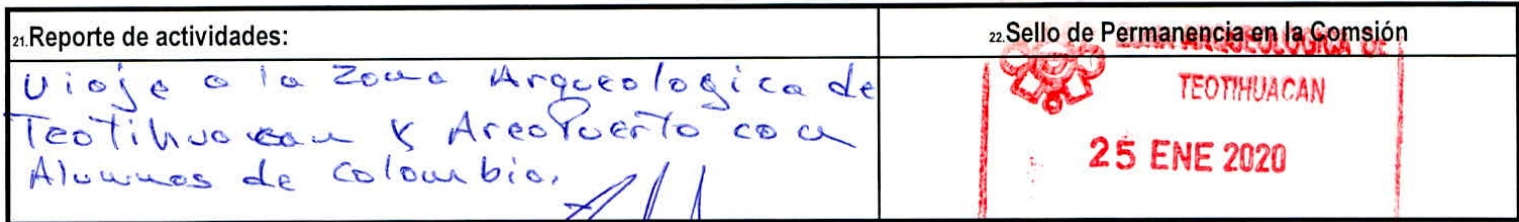 21.Reporte de actividades:
22.Sello de Permanencia en la Comsión
Viaje a la Zona Arqueologica de
Teotihuacan y AreoPuerto con
Alumnos de Colombia.
ZONA ARQUEOLOGICA DE
TEOTIHUACAN
25 ENE 2020